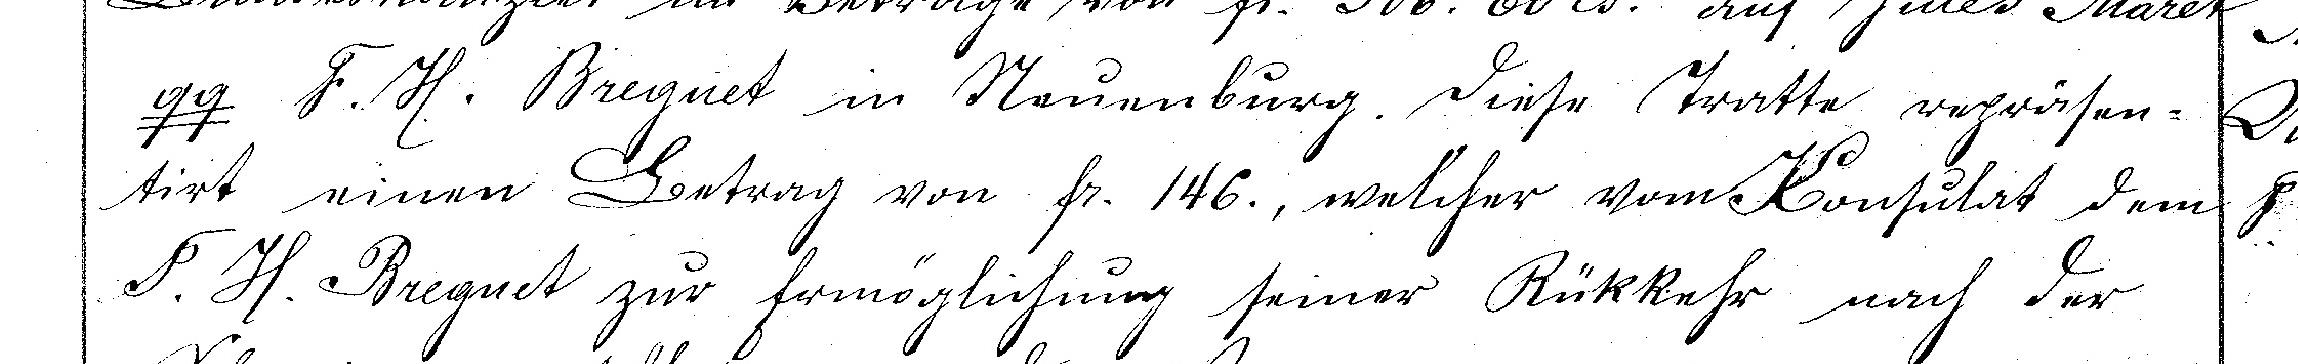 im Betrage von fr. auf Jules Maret
qq F. H. Breguet in Neuenburg. Diese Tratte repräsen-
tirt einen Betrag von fr. 146., welcher vom Konsulat dem
F. H. Breguet zur Ermöglichung seiner Rükkehr nach der